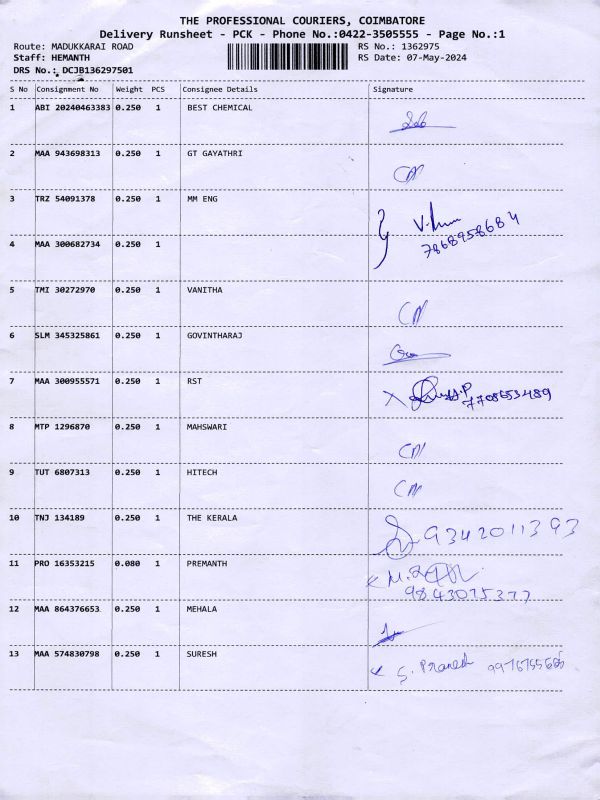 THE PROFESSIONAL COURIERS, COIMBATORE
Delivery Runsheet - PCK - Phone No.:0422-3505555 - Page No.:1
Route: MADUKKARAI ROAD RS No.: 1362975
Staff: HEMANTH RS Date: 07-May-2024
DRS No.: DCJB136297501
S No Consignment No Weight PCS Consignee Details Signature
1 ABI 20240463383 0.250 1 BEST CHEMICAL
2 MAA 943698313 0.250 1 GT GAYATHRI
3 TRZ 54091378 0.250 1 MM ENG
7868958684
4 MAA 300682734 0.250 1
5 TMI 30272970 0.250 1 VANITHA
6 SLM 345325861 0.250 1 GOVINTHARAJ
7 MAA 300955571 0.250 1 RST
8 MTP 1296870 0.250 1 MAHSWARI
9 TUT 6807313 0.250 1 HITECH
10 TNJ 134189 0.250 1 THE KERALA 9342011393
11 PRO 16353215 0.080 1 PREMANTH
9843075377
12 MAA 864376653 0.250 1 MEHALA
13 MAA 574830798 0.250 1 SURESH